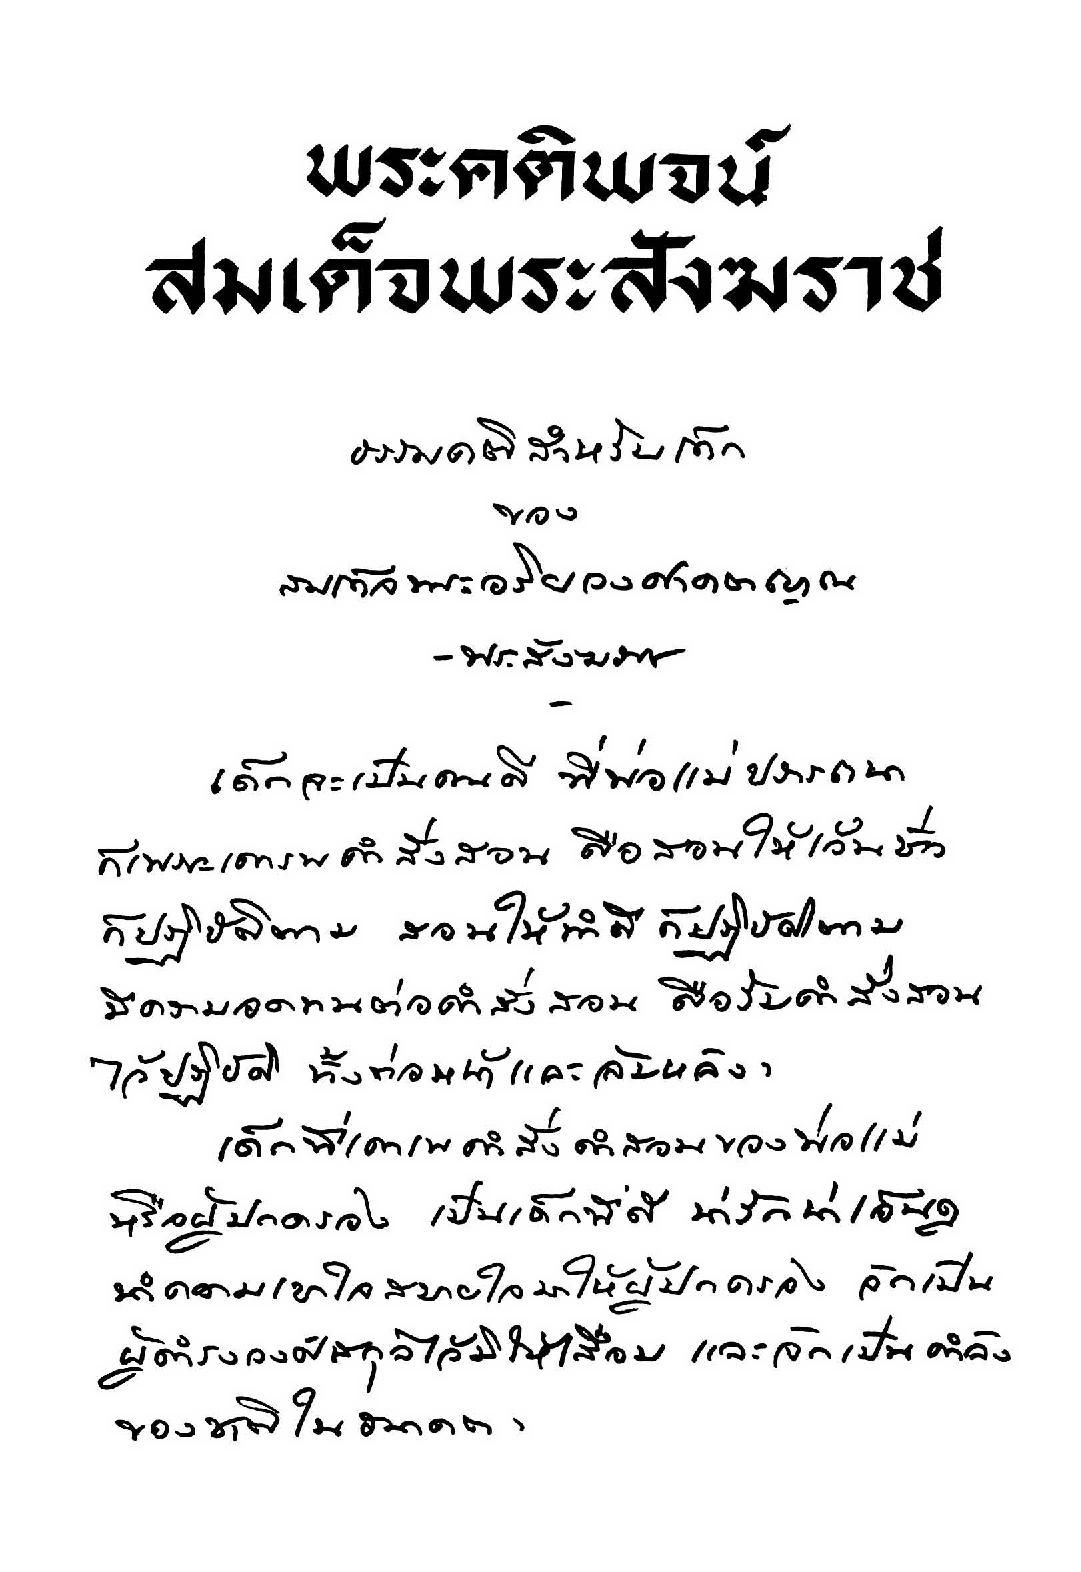 พระคติพจน์
สมเด็จพระสังฆราช
ธรรมคติสำหรับเด็ก
ของ
สมเด็จพระอริยวงศาคตญาณ
-พระสังฆราช
-
เด็กจะเป็นคนดี ที่พ่อแม่ปรารถนา
ก็เพราะเคารพคำสั่งสอน คือสอนให้เว้นชั่ว
ก็ปฏิบัติตาม สอนให้ทำดี ก็ปฏิบัติตาม
มีความอดทนต่อคำสั่งสอน คือรับคำสั่งสอน
ไว้ปฏิบัติ ทั้งต่อหน้าและลับหลัง ฯ
เด็กที่เคารพคำสั่งคำสอนของพ่อแม่
หรือผู้ปกครอง เป็นเด็กที่ดี น่ารักน่าเอ็นดู
นำความเบาใจสบายใจมาให้ผู้ปกครอง จักเป็น
ผู้ดำรงวงศ์สกุลไว้มิให้เสื่อม และจักเป็นกำลัง
ของชาติในอนาคต ฯ